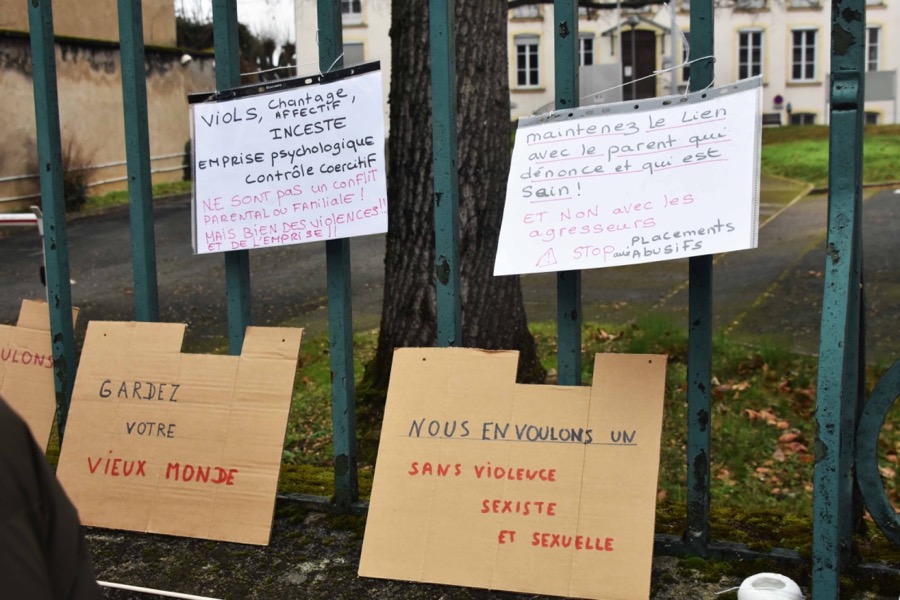 VIOLS, chantage
AFFECTIF,
INCESTE
EMPRISE psychologique
Contrôle CoercitiF
NE SONT PAS UN CONFLIT
PARENTAL OU FAMILIALE !
MAIS BIEN DES VIOLENCES!!
ET DE L'EMPRISE !!
maintenez le Lien
avec le parent qui
dénonce et qui est
Sain !
ET NON avec les
agresseurs
STOP aux PLACEMENTS
ABUSIFS
OULONS
GARDEZ
VOTRE
VIEUX MONDE
NOUS EN VOULONS UN
SANS VIOLENCE
SEXISTE
ET SEXUELLE